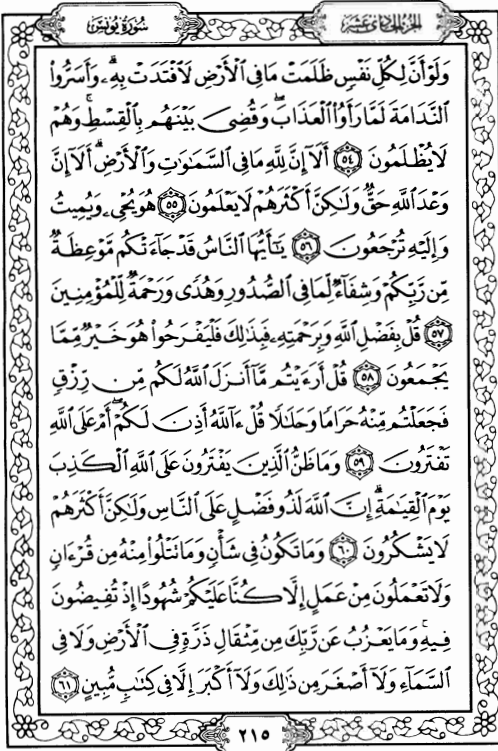 سُورَةُ يُونُسَ
الجُزْءُ الحَادِي عَشَر
وَلَوْ أَنَّ لِكُلِّ نَفْسٍ ظَلَمَتْ مَا فِي ٱلْأَرْضِ لَٱفْتَدَتْ بِهِۦۗ وَأَسَرُّوا۟
ٱلنَّدَامَةَ لَمَّا رَأَوُا۟ ٱلْعَذَابَۖ وَقُضِىَ بَيْنَهُم بِٱلْقِسْطِۚ وَهُمْ
لَا يُظْلَمُونَ ٥٤ أَلَآ إِنَّ لِلَّهِ مَا فِي ٱلسَّمَٰوَٰتِ وَٱلْأَرْضِۗ أَلَآ إِنَّ
وَعْدَ ٱللَّهِ حَقٌّ وَلَٰكِنَّ أَكْثَرَهُمْ لَا يَعْلَمُونَ ٥٥ هُوَ يُحْىِۦ وَيُمِيتُ
وَإِلَيْهِ تُرْجَعُونَ ٥٦ يَٰٓأَيُّهَا ٱلنَّاسُ قَدْ جَآءَتْكُم مَّوْعِظَةٌ
مِّن رَّبِّكُمْ وَشِفَآءٌ لِّمَا فِي ٱلصُّدُورِ وَهُدًى وَرَحْمَةٌ لِّلْمُؤْمِنِينَ
٥٧ قُلْ بِفَضْلِ ٱللَّهِ وَبِرَحْمَتِهِۦ فَبِذَٰلِكَ فَلْيَفْرَحُوا۟ هُوَ خَيْرٌ مِّمَّا
يَجْمَعُونَ ٥٨ قُلْ أَرَءَيْتُم مَّآ أَنزَلَ ٱللَّهُ لَكُم مِّن رِّزْقٍ
فَجَعَلْتُم مِّنْهُ حَرَامًا وَحَلَٰلًا قُلْ ءَآللَّهُ أَذِنَ لَكُمْۖ أَمْ عَلَى ٱللَّهِ
تَفْتَرُونَ ٥٩ وَمَا ظَنُّ ٱلَّذِينَ يَفْتَرُونَ عَلَى ٱللَّهِ ٱلْكَذِبَ
يَوْمَ ٱلْقِيَٰمَةِۗ إِنَّ ٱللَّهَ لَذُو فَضْلٍ عَلَى ٱلنَّاسِ وَلَٰكِنَّ أَكْثَرَهُمْ
لَا يَشْكُرُونَ ٦٠ وَمَا تَكُونُ فِي شَأْنٍ وَمَا تَتْلُوا۟ مِنْهُ مِن قُرْءَانٍ
وَلَا تَعْمَلُونَ مِنْ عَمَلٍ إِلَّا كُنَّا عَلَيْكُمْ شُهُودًا إِذْ تُفِيضُونَ
فِيهِۚ وَمَا يَعْزُبُ عَن رَّبِّكَ مِن مِّثْقَالِ ذَرَّةٍ فِي ٱلْأَرْضِ وَلَا فِي
ٱلسَّمَآءِ وَلَآ أَصْغَرَ مِن ذَٰلِكَ وَلَآ أَكْبَرَ إِلَّا فِي كِتَٰبٍ مُّبِينٍ ٦١
٢١٥